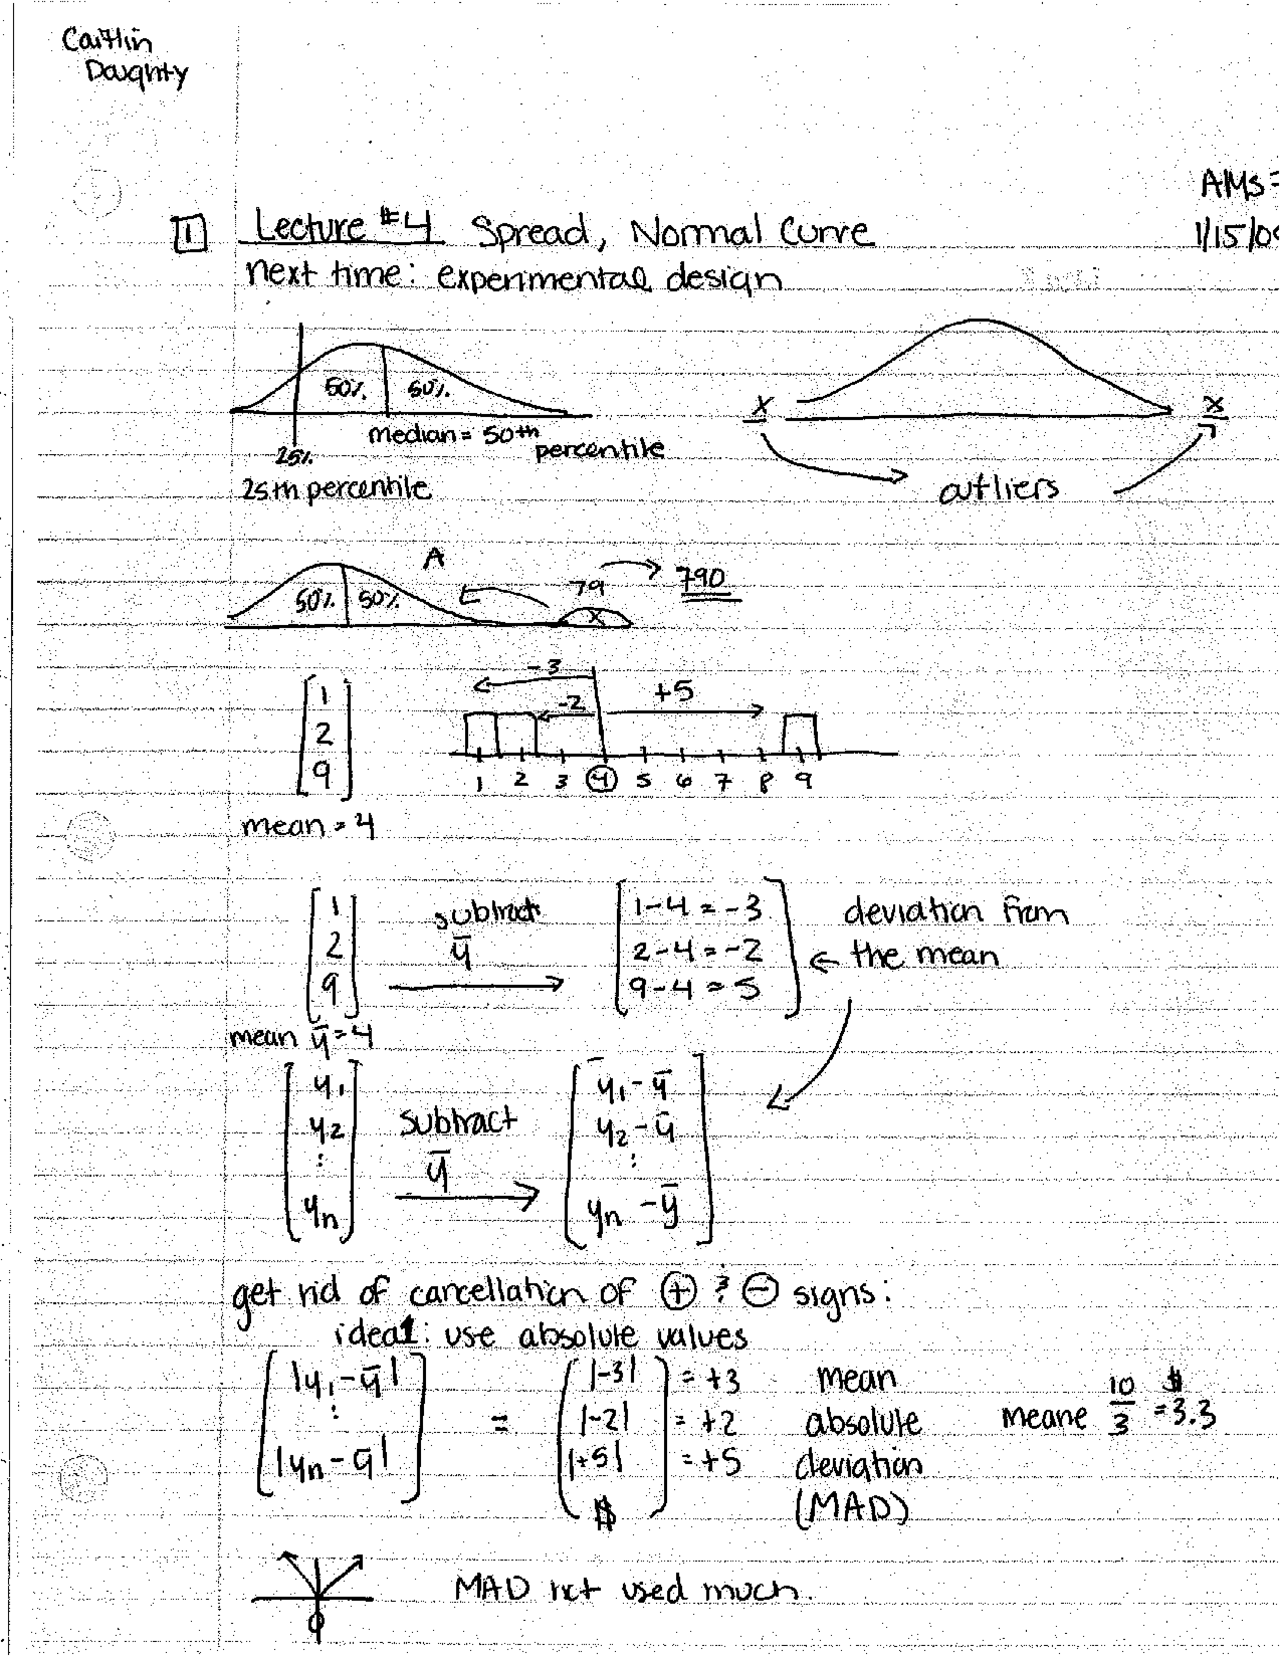 Caitlin
Doughty
AMS
1/15/0
1 Lecture #4 Spread, Normal Curve
next time: experimental design
50% 50%
median = 50th percentile
25%
25th percentile
x x
outliers
A
50% 50%
79 790
x
-3
-2 +5
1
2
9
1 2 3 4 5 6 7 8 9
mean = 4
1
2
9
subtract
ȳ
1-4 = -3
2-4 = -2
9-4 = 5
deviation from
the mean
mean ȳ = 4
y₁
y₂
⋮
yₙ
subtract
ȳ
y₁ - ȳ
y₂ - ȳ
⋮
yₙ - ȳ
get rid of cancellation of ⊕ & ⊖ signs:
idea 1: use absolute values
|y₁ - ȳ|
⋮
|yₙ - ȳ|
=
|-3| = +3
|-2| = +2
|+5| = +5
$
mean
absolute
deviation
(MAD)
mean 10/3 = $3.3
0
MAD not used much.